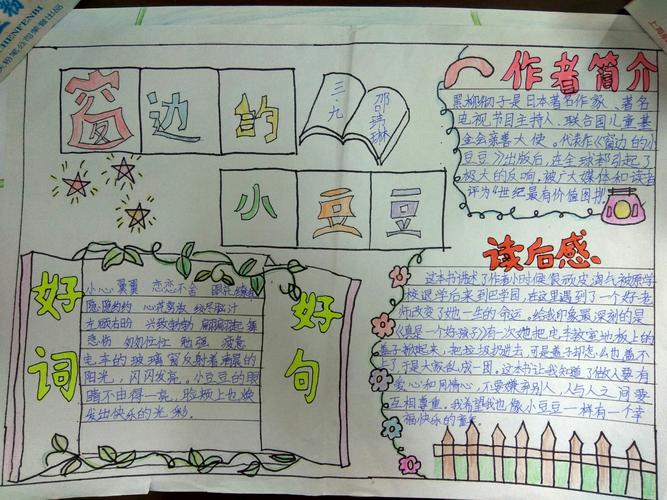 窗边的
小豆豆
三、九
邵琦琳
作者简介
黑柳彻子是日本著名作家、著名
电视节目主持人、联合国儿童基
金会亲善大使。代表作《窗边的小
豆豆》出版后，在全球都引起了
极大的反响，被广大媒体和读者
评为4世纪最有价值图书
好词
好句
小心翼翼 恋恋不舍 眼花缭乱
隐隐约约 心花怒放 绞尽脑汁
左顾右盼 兴致勃勃
悲伤 匆匆忙忙 勉强 疲惫
电车的玻璃窗反射着清晨的
阳光，闪闪发亮。小豆豆的眼
睛不由得一亮，脸颊上也焕
发出快乐的光彩。
读后感
这本书讲述了作者小时候很顽皮淘气被原学
校退学后来到巴学园，在这里遇到了一个好老
师改变了她一生的命运。给我印象最深刻的是
《真是一个好孩子》有一次她把电车教室地板上的
盖子掀起来，把垃圾扔进去，可是盖子却怎么也盖不
上了于是大家乱成一团。这本书让我知道了做人要有
爱心和同情心，不要嫌弃别人，人与人之间要
互相尊重。我希望我也像小豆豆一样有一个幸
福快乐的童年